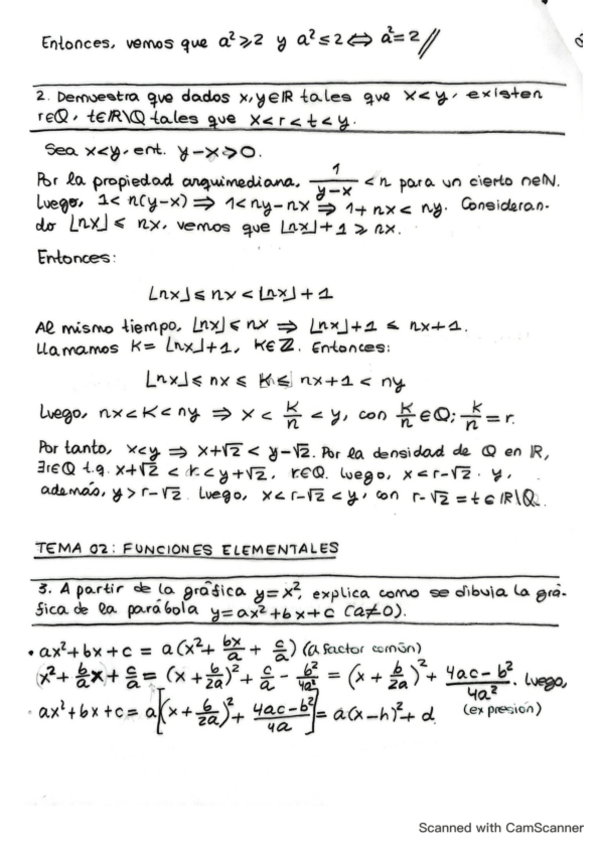 Entonces, vemos que a² ≥ 2 y a² ≤ 2 ⇔ a² = 2 //
2. Demuestra que dados x, y ∈ ℝ tales que x < y, existen
r ∈ ℚ, t ∈ ℝ\ℚ tales que x < r < t < y.
Sea x < y, ent. y - x > 0.
Por la propiedad arquimediana, 1/(y-x) < n para un cierto n ∈ ℕ.
Luego, 1 < n(y-x) ⇒ 1 < ny - nx ⇒ 1 + nx < ny. Consideran-
do ⌊nx⌋ ≤ nx, vemos que ⌊nx⌋ + 1 ≥ nx.
Entonces:
⌊nx⌋ ≤ nx < ⌊nx⌋ + 1
Al mismo tiempo, ⌊nx⌋ ≤ nx ⇒ ⌊nx⌋ + 1 ≤ nx + 1.
Llamamos K = ⌊nx⌋ + 1, K ∈ ℤ. Entonces:
⌊nx⌋ ≤ nx ≤ K ≤ nx + 1 < ny
Luego, nx < K < ny ⇒ x < K/n < y, con K/n ∈ ℚ; K/n = r.
Por tanto, x < y ⇒ x + √2 < y - √2. Por la densidad de ℚ en ℝ,
∃r ∈ ℚ t.q. x + √2 < r < y + √2, r ∈ ℚ. Luego, x < r - √2 . y,
además, y > r - √2. Luego, x < r - √2 < y, con r - √2 = t ∈ ℝ\ℚ.
TEMA 02: FUNCIONES ELEMENTALES
3. A partir de la gráfica y = x², explica como se dibuja la grá-
fica de la parábola y = ax² + bx + c (a ≠ 0).
• ax² + bx + c = a(x² + bx/a + c/a) (a factor común)
(x² + b/a x + c/a = (x + b/2a)² + c/a - b²/4a² = (x + b/2a)² + (4ac - b²)/4a². Luego,
· ax² + bx + c = a[(x + b/2a)² + (4ac - b²)/4a] = a(x - h)² + d. (expresión)
Scanned with CamScanner